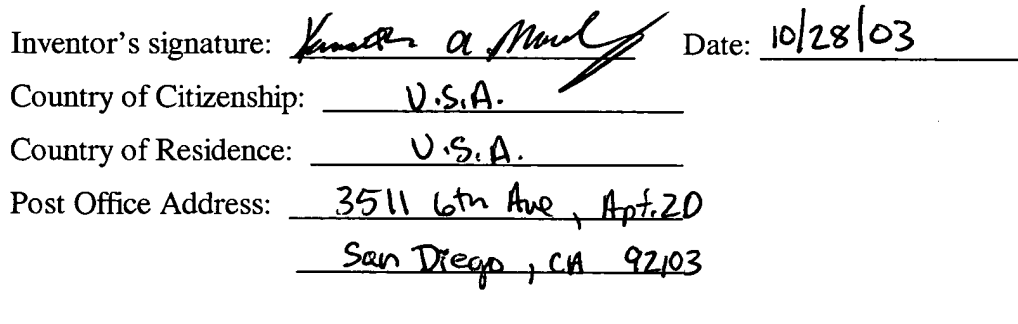 Inventor's signature: Kenneth a Date: 10/28/03
Country of Citizenship: U.S.A.
Country of Residence: U.S.A.
Post Office Address: 3511 6th Ave, Apt. 2D
San Diego, CA 92103